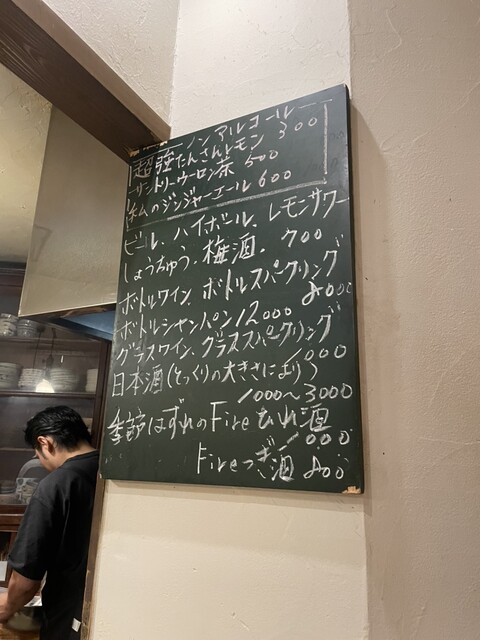 ノンアルコール
超強たんさんレモン 300
サントリーウーロン茶 500
私のジンジャーエール 600
ビール、ハイボール、レモンサワー
しょうちゅう、梅酒、700
ボトルワイン、ボトルスパークリング
8000
ボトルシャンパン 12000
グラスワイン、グラススパークリング
1000
日本酒(とっくりの大きさにより)
1000〜3000
季節はずれのFireひれ酒
1000
Fireつぎ酒 800